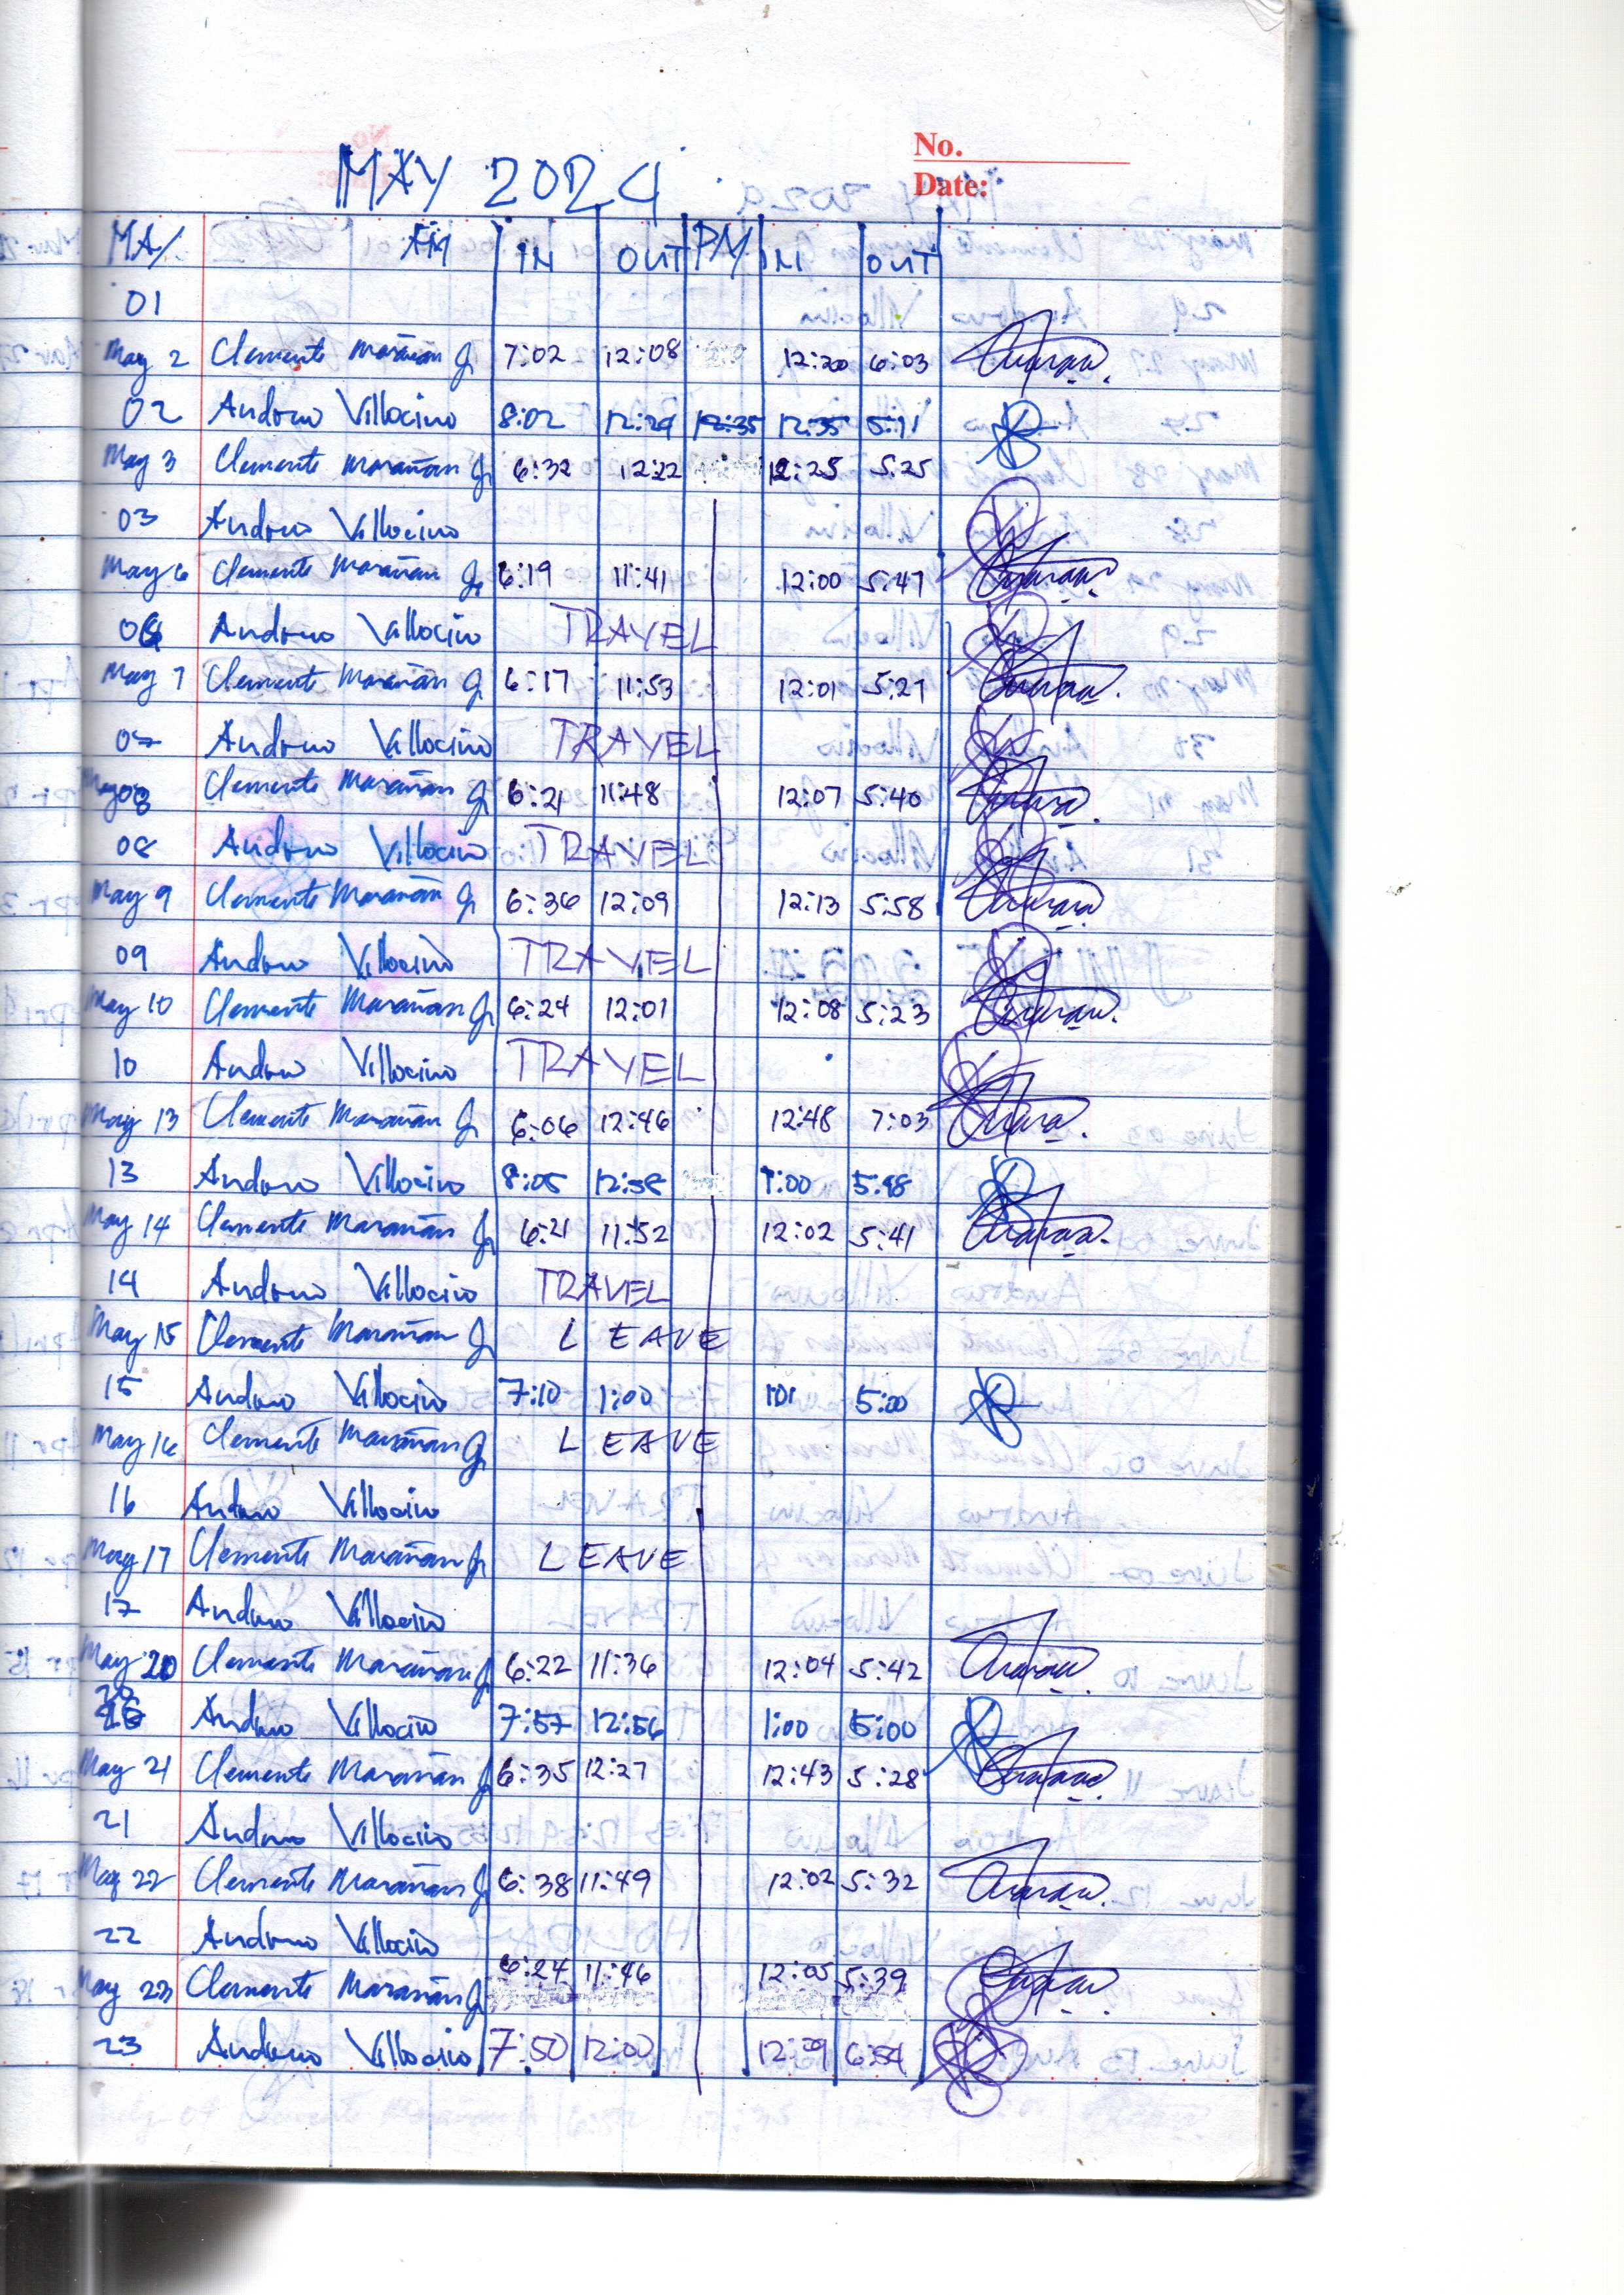 No.
Date:
MAY 2024
MAY AM IN OUT PM IN OUT
01
May 2 Clemente Marañan Jr 7:02 12:08 12:20 6:03
02 Andono Villocino 8:02 12:29 12:35 12:35 5:11
May 3 Clemente Marañan Jr 6:32 12:22 12:25 5:25
03 Andono Villocino
May 6 Clemente Marañan Jr 6:19 11:41 12:00 5:47
06 Andono Villocino TRAVEL
May 7 Clemente Marañan Jr 6:17 11:53 12:01 5:27
07 Andono Villocino TRAVEL
May 08 Clemente Marañan Jr 6:21 11:48 12:07 5:40
08 Andono Villocino TRAVEL
May 9 Clemente Marañan Jr 6:36 12:09 12:13 5:58
09 Andono Villocino TRAVEL
May 10 Clemente Marañan Jr 6:24 12:01 12:08 5:23
10 Andono Villocino TRAVEL
May 13 Clemente Marañan Jr 6:06 12:46 12:48 7:03
13 Andono Villocino 8:05 12:58 1:00 5:48
May 14 Clemente Marañan Jr 6:21 11:52 12:02 5:41
14 Andono Villocino TRAVEL
May 15 Clemente Marañan Jr LEAVE
15 Andono Villocino 7:10 1:00 1:01 5:00
May 16 Clemente Marañan Jr LEAVE
16 Andono Villocino
May 17 Clemente Marañan Jr LEAVE
17 Andono Villocino
May 20 Clemente Marañan Jr 6:22 11:36 12:04 5:42
20 Andono Villocino 7:57 12:56 1:00 5:00
May 21 Clemente Marañan Jr 6:35 12:27 12:43 5:28
21 Andono Villocino
May 22 Clemente Marañan Jr 6:38 11:49 12:02 5:32
22 Andono Villocino
May 23 Clemente Marañan Jr 6:24 11:46 12:05 5:39
23 Andono Villocino 7:50 12:00 12:09 6:54